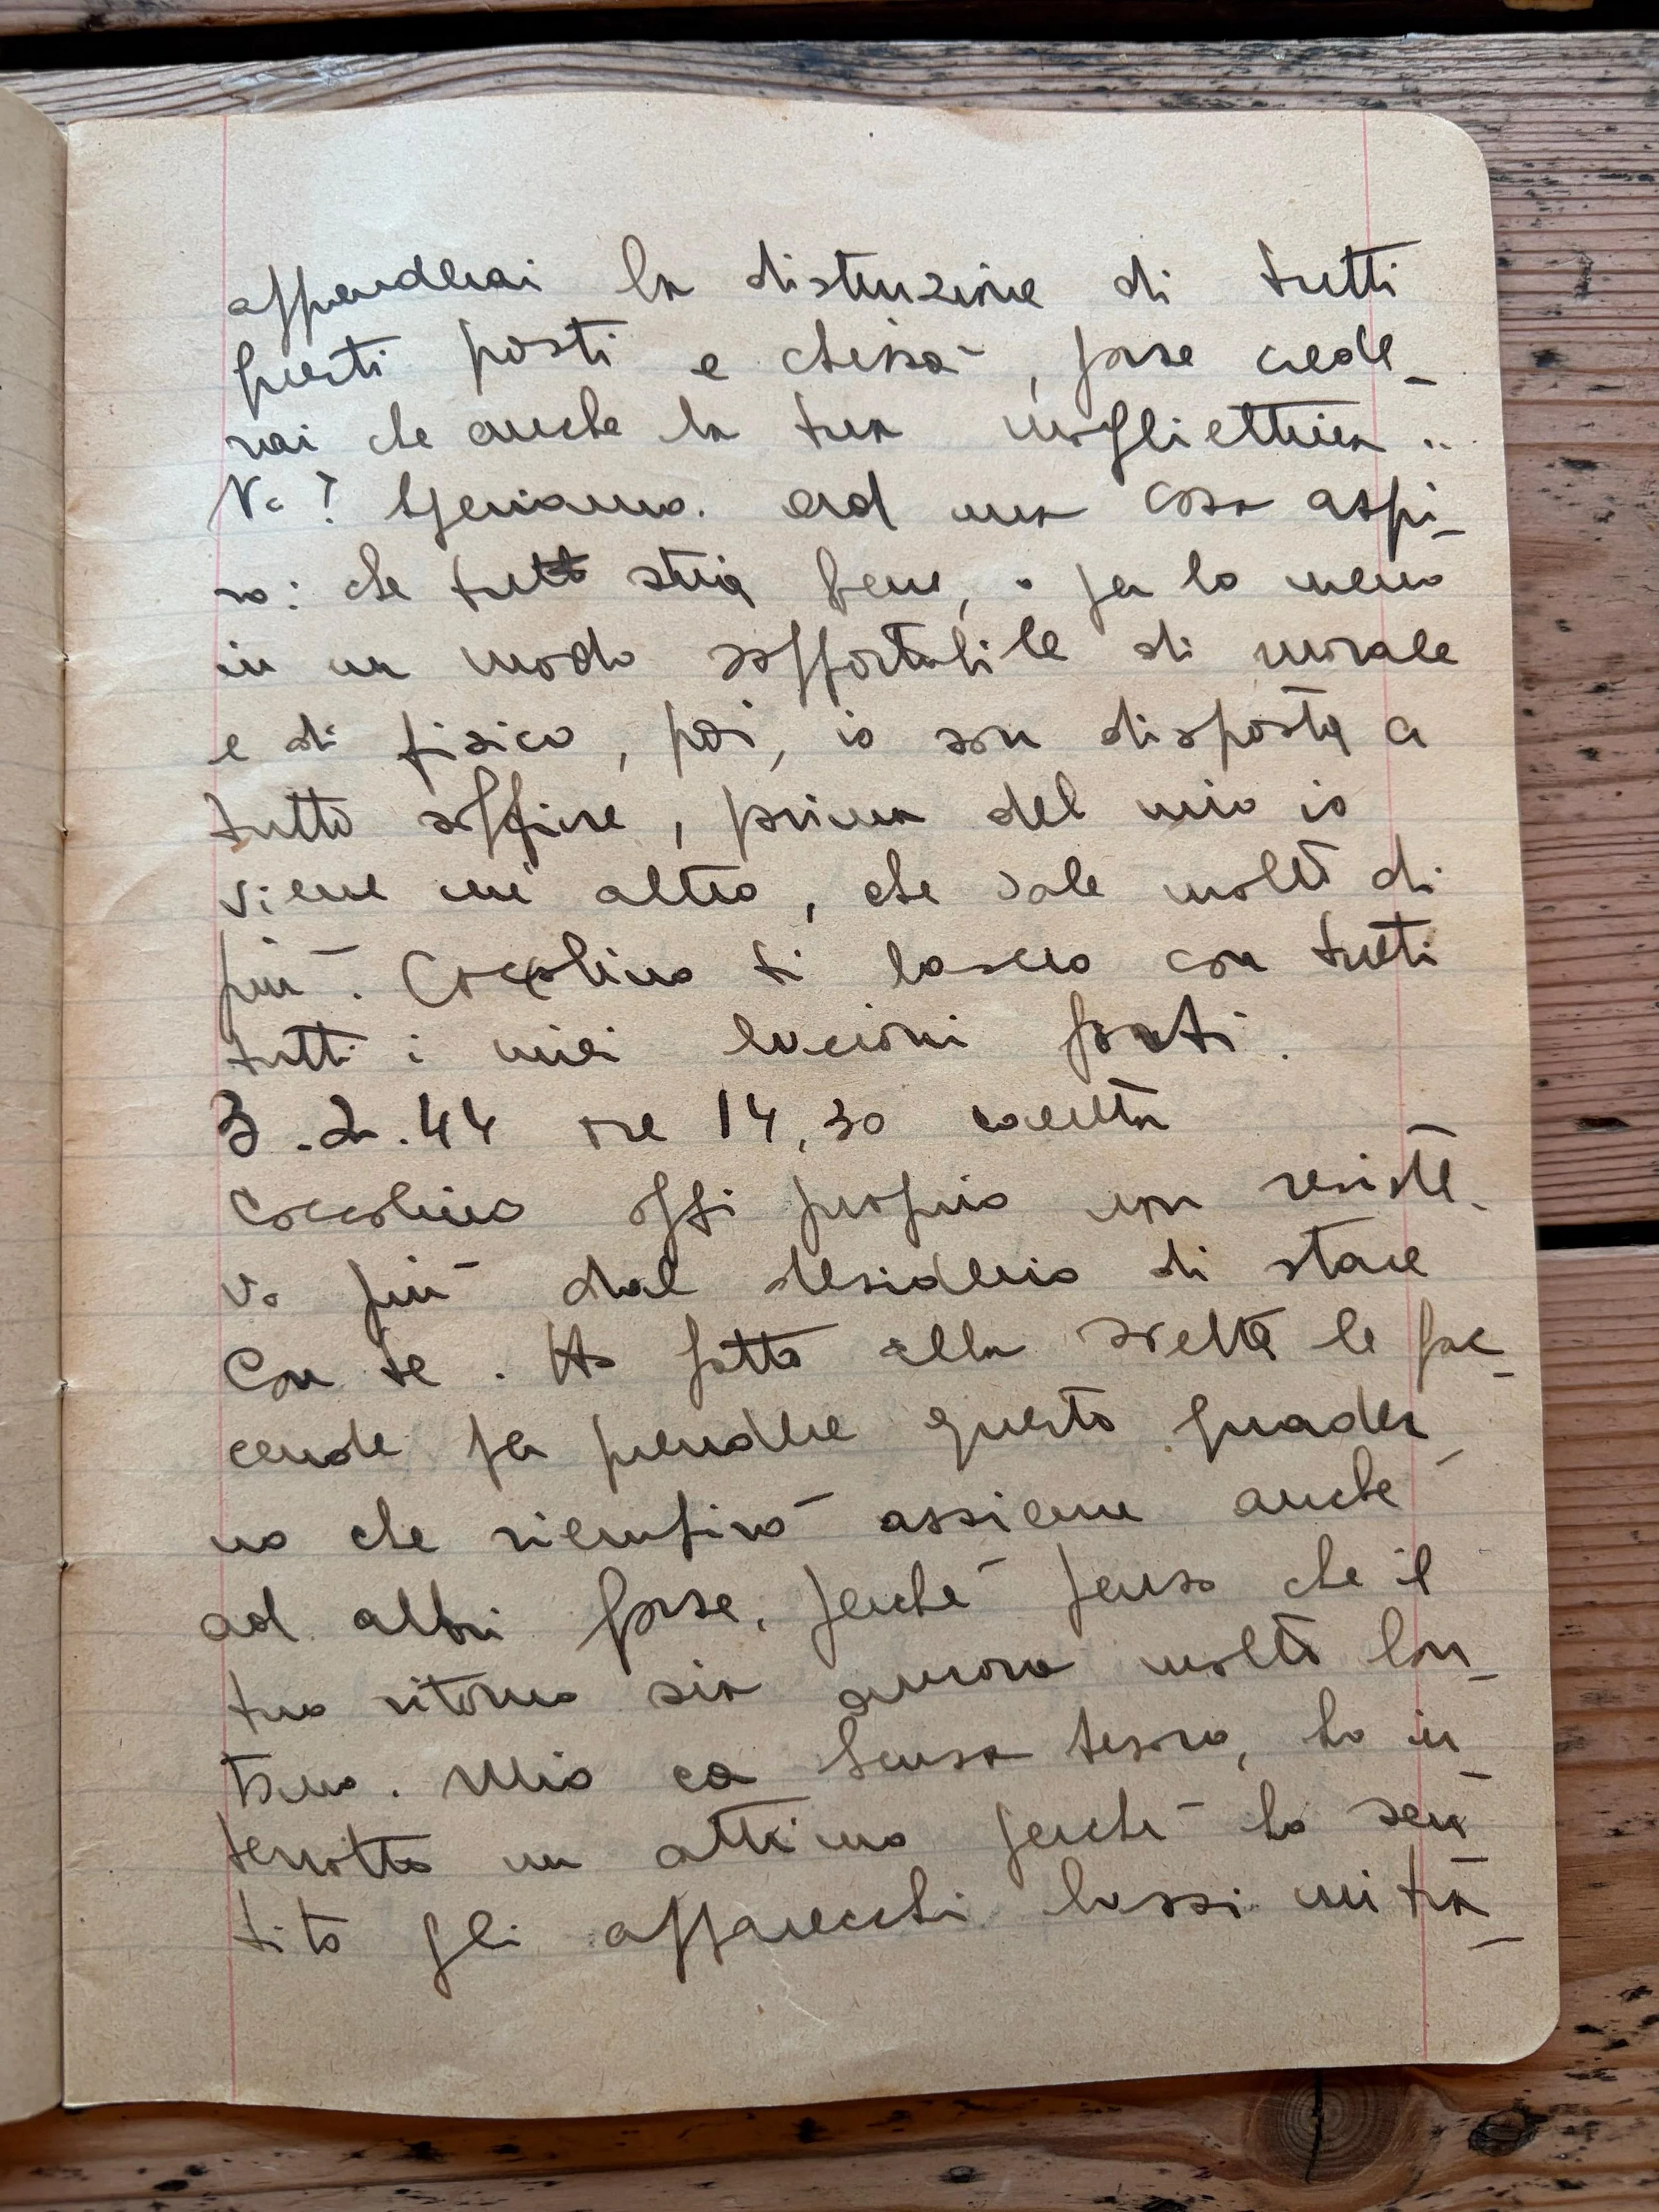 apprenderai la distruzione di tutti
questi posti e chissà, forse crede_
rai che anche la tua mogliettina ..
No? Speriamo. Ad una cosa aspi_
ro: che tutto stia bene, o per lo meno
in un modo sopportabile di morale
e di fisico, poi, io son disposta a
tutto soffrire, prima del mio io
viene un altro, che vale molto di
più. Coccolino ti lascio con tutti
tutti i miei bacioni forti.
3.2.44 ore 14,30
Coccolino oggi proprio non resiste_
vo più dal desiderio di stare
con te. Ho fatto alla svelta le fac_
cende per prendere questo quader_
no che riempirò assieme anche
ad altri forse, perché penso che il
tuo ritorno sia ancora molto lon_
tano. Mio tesoro, ho in_
terrotto un attimo perché ho sen_
tito gli apparecchi bassi mitra_